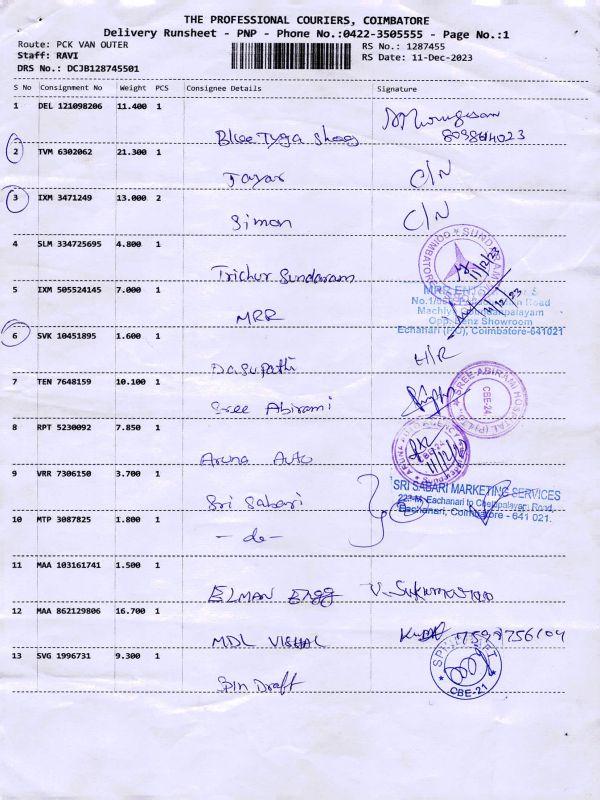 THE PROFESSIONAL COURIERS, COIMBATORE
Delivery Runsheet - PNP - Phone No.:0422-3505555 - Page No.:1
Route: PCK VAN OUTER
RS No.: 1287455
Staff: RAVI
RS Date: 11-Dec-2023
DRS No.: DCJB128745501
S No Consignment No Weight PCS Consignee Details Signature
1 DEL 121098206 11.400 1
2 TVM 6302062 21.300 1
C/N
3 IXM 3471249 13.000 2
Simon C/N
4 SLM 334725695 4.800 1
COIMBATORE
11/12/23
Trichur Sundaram
5 IXM 505524145 7.000 1
MRR
Opp. Benz Showroom
Echanari (PO), Coimbatore-641021
6 SVK 10451895 1.600 1
H/R
7 TEN 7648159 10.100 1
SREE ABIRAMI HOSPITAL
CBE-24
Sree Abirami
8 RPT 5230092 7.850 1
11/12/23
Aruna Auto
9 VRR 7306150 3.700 1
SRI SABARI MARKETING SERVICES
Sri Sabari
Eachanari, Coimbatore - 641 021.
10 MTP 3087825 1.800 1
- do -
11 MAA 103161741 1.500 1
ELMAN Engg
12 MAA 862129806 16.700 1
MDL VISHAL
13 SVG 1996731 9.300 1
CBE-21
Spin Draft